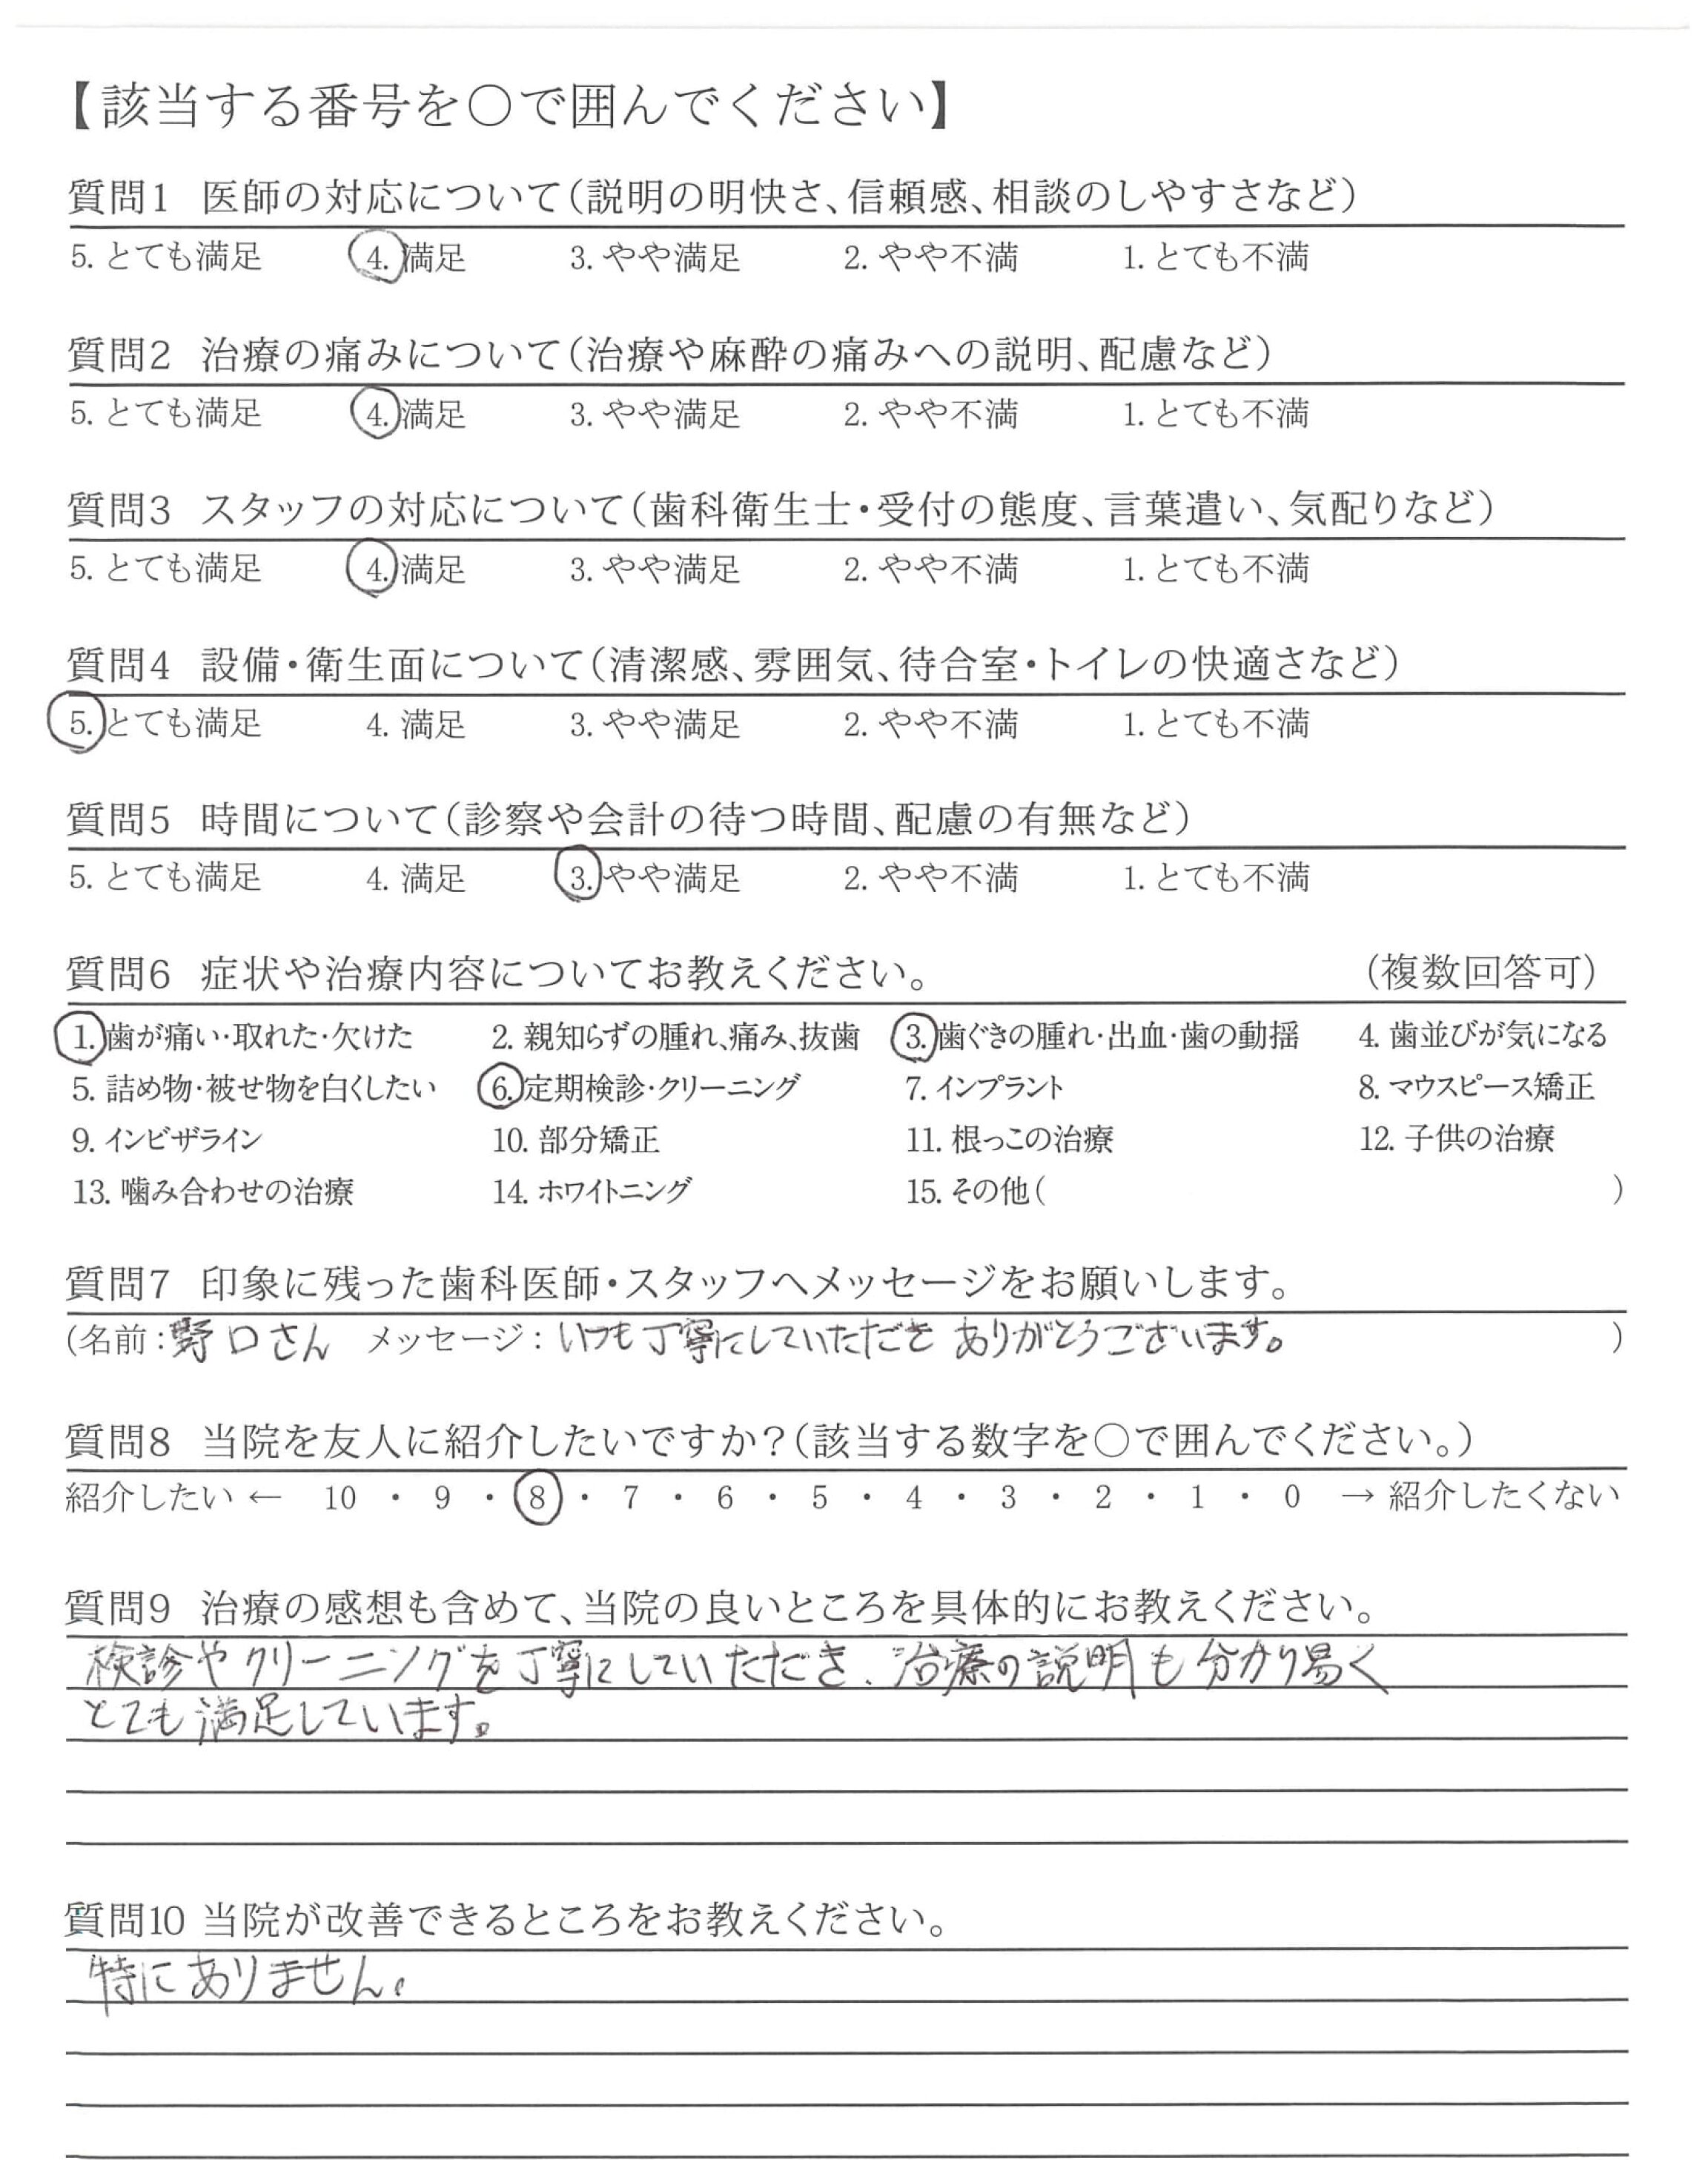 【該当する番号を○で囲んでください】
質問1 医師の対応について(説明の明快さ、信頼感、相談のしやすさなど)
5. とても満足 4. 満足 3. やや満足 2. やや不満 1. とても不満
質問2 治療の痛みについて(治療や麻酔の痛みへの説明、配慮など)
5. とても満足 4. 満足 3. やや満足 2. やや不満 1. とても不満
質問3 スタッフの対応について(歯科衛生士・受付の態度、言葉遣い、気配りなど)
5. とても満足 4. 満足 3. やや満足 2. やや不満 1. とても不満
質問4 設備・衛生面について(清潔感、雰囲気、待合室・トイレの快適さなど)
5. とても満足 4. 満足 3. やや満足 2. やや不満 1. とても不満
質問5 時間について(診察や会計の待つ時間、配慮の有無など)
5. とても満足 4. 満足 3. やや満足 2. やや不満 1. とても不満
質問6 症状や治療内容についてお教えください。 (複数回答可)
1. 歯が痛い・取れた・欠けた 2. 親知らずの腫れ、痛み、抜歯 3. 歯ぐきの腫れ・出血・歯の動揺 4. 歯並びが気になる
5. 詰め物・被せ物を白くしたい 6. 定期検診・クリーニング 7. インプラント 8. マウスピース矯正
9. インビザライン 10. 部分矯正 11. 根っこの治療 12. 子供の治療
13. 噛み合わせの治療 14. ホワイトニング 15. その他( )
質問7 印象に残った歯科医師・スタッフへメッセージをお願いします。
(名前:野口さん メッセージ:いつも丁寧にしていただき ありがとうございます。 )
質問8 当院を友人に紹介したいですか?(該当する数字を○で囲んでください。)
紹介したい ← 10 ・ 9 ・ 8 ・ 7 ・ 6 ・ 5 ・ 4 ・ 3 ・ 2 ・ 1 ・ 0 → 紹介したくない
質問9 治療の感想も含めて、当院の良いところを具体的にお教えください。
検診やクリーニングを丁寧にしていただき、治療の説明も分かり易く
とても満足しています。
質問10 当院が改善できるところをお教えください。
特にありません。